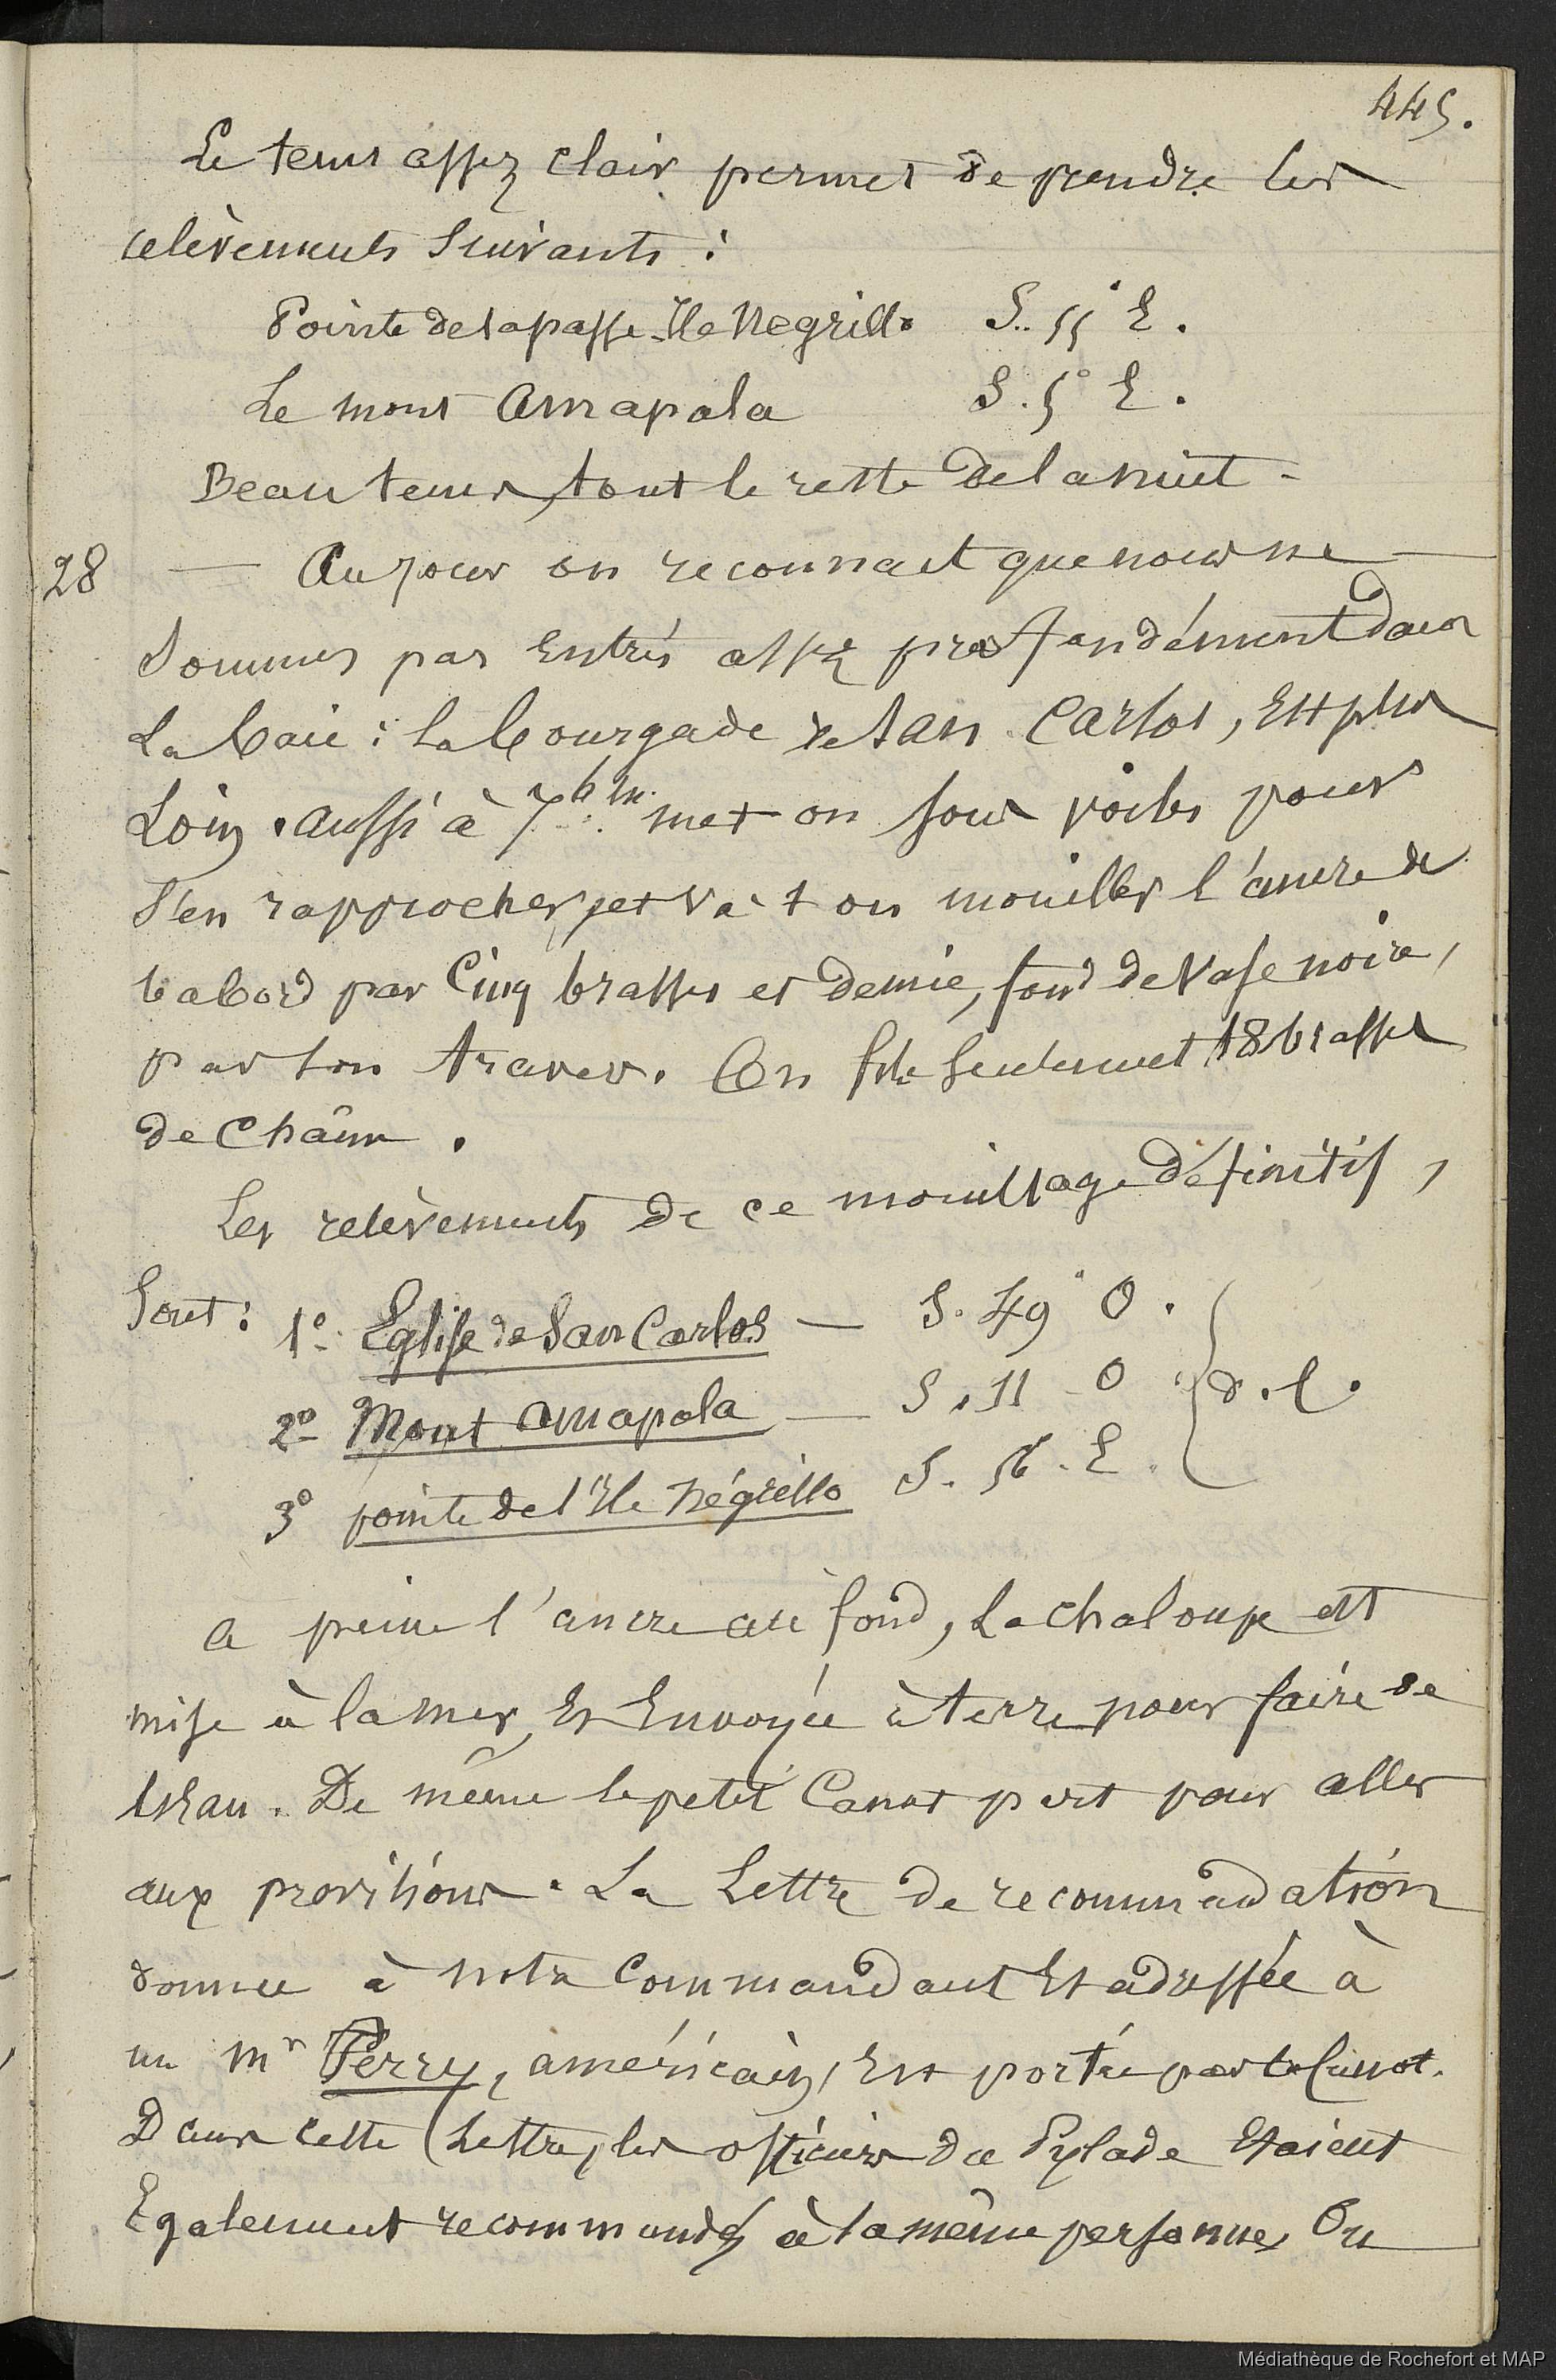 445.
Le tems assez clair permet de prendre les
relèvements suivants :
Pointe de la passe Ile Negrillo S. 55° E.
Le mont Amapala S. 5° E.
Beau tems, tout le reste de la nuit -
28 — Au jour on reconnait que nous ne —
sommes pas entrés assez profondément dans
La baie : la bourgade de San Carlos, est plus
Loin. aussi à 7h m. met on sous voiles pour
s'en rapprocher, et va-t on mouiller l'ancre de
babord par cinq brasses et demie, fond de vase noire,
par son travers. On file seulement 18 brasses
de chaîne.
Les relèvements de ce mouillage définitif,
Sont : 1° Eglise de San Carlos — S. 49° O.
2° Mont Amapala — S. 11 O } d. c.
3° pointe de l'Ile Négrillo S. 56. E.
a peine l'ancre au fond, la chaloupe est
mise à la mer, et Envoyée à terre pour faire de
l'eau. De même le petit Canot part pour aller
aux provisions. La Lettre de recommandation
donnée à notre Commandant et adressée à
un Mr Perry, américain, est portée par le Canot.
Dans cette Lettre, les officiers du Pylade étaient
Egalement recommandés à la même personne, On
Médiathèque de Rochefort et MAP